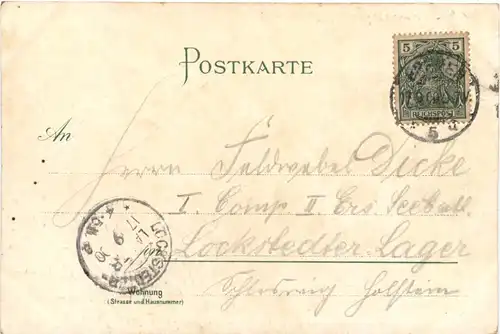 POSTKARTE
5 5
REICHSPOST
An
Herrn Feldwebel Dicke
I. Comp II Ers. Seebatl.
Lockstedter Lager
Schleswig Holstein
LOCKSTEDT
Wohnung
(Strasse und Hausnummer)